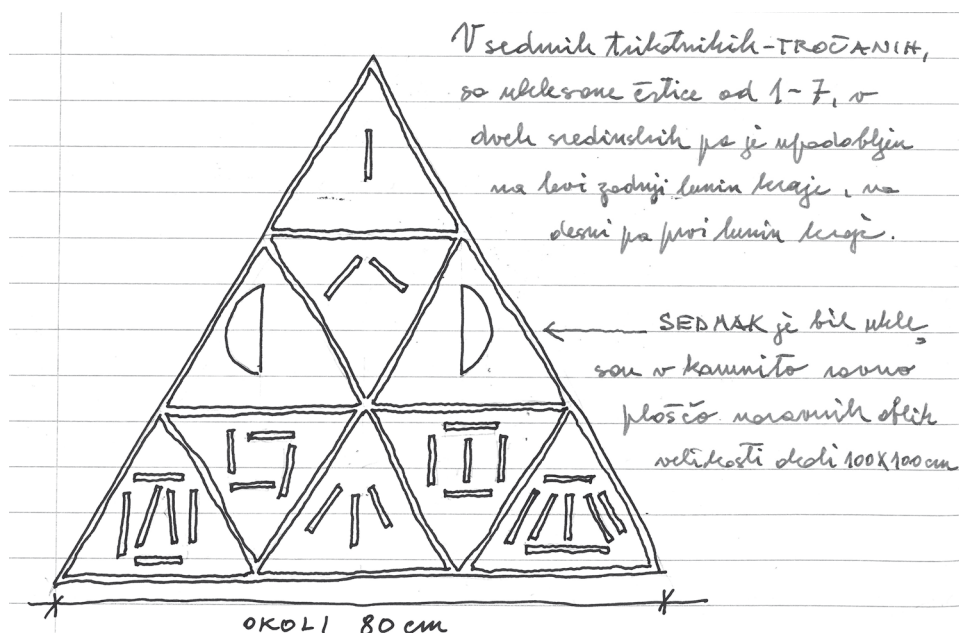 V sedmih trikotnikih-TROČANIH,
so uklesane črtice od 1-7, v
dveh sredinskih pa je upodobljen
na levi zadnji lunin krajec, na
desni pa prvi lunin krajec.
SEDMAK je bil ukle,
san v kamnito ravno
ploščo naravnih oblik
velikosti okoli 100X100cm
OKOLI 80 cm